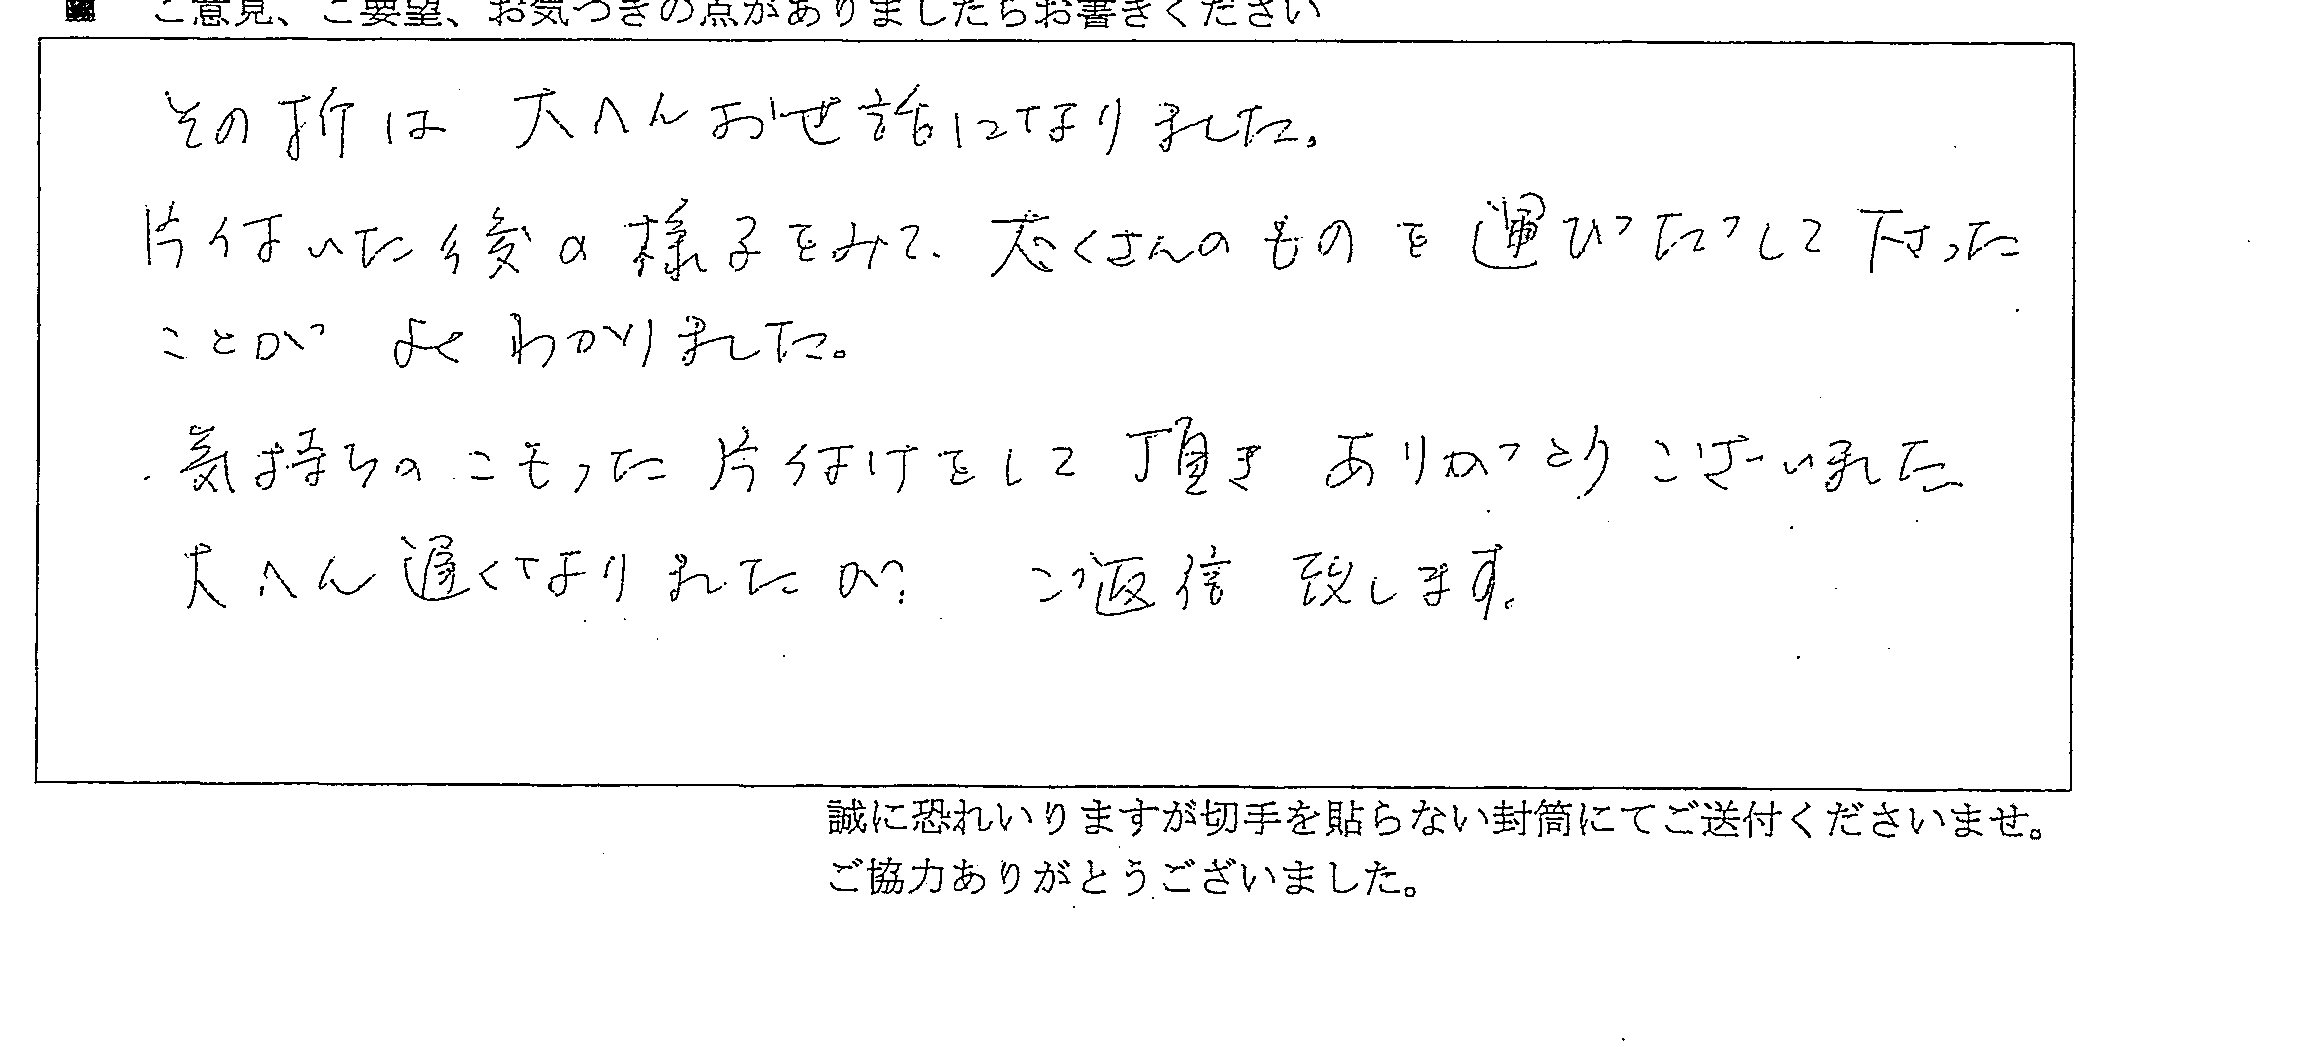 ■ ご意見、ご要望、お気づきの点がありましたらお書きください
その折は 大へんお世話になりました。
片付いた後の様子をみて、たくさんのものを運びだして下さった
ことが よくわかりました。
気持ちのこもった片付けをして頂きありがとうございました
大へん遅くなりましたが、ご返信致します。
誠に恐れいりますが切手を貼らない封筒にてご送付くださいませ。
ご協力ありがとうございました。